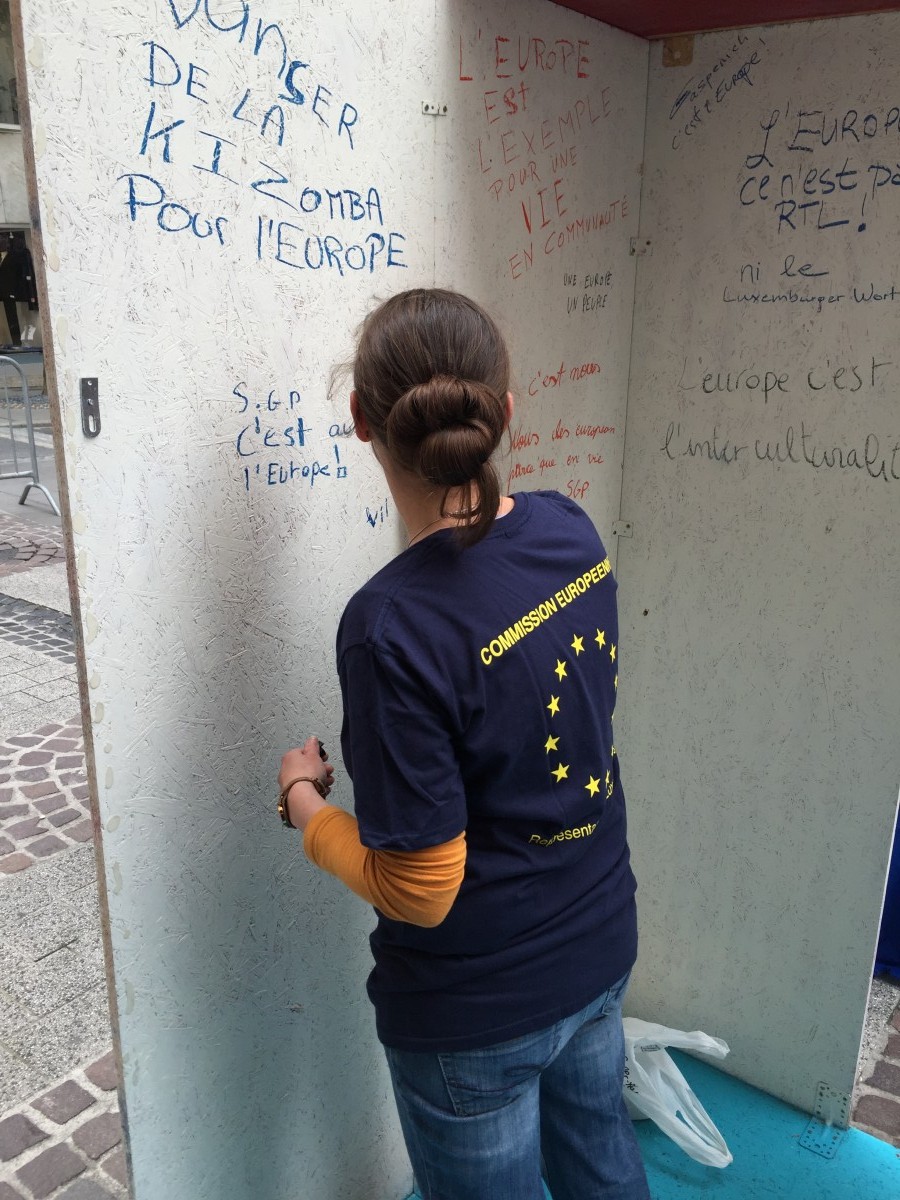 DANSER
DE LA
KIZOMBA
POUR l'EUROPE
S.G.P
C'est au
l'Europe!
Vil
L'EUROPE
Est
L'EXEMPLE
POUR UNE
VIE
EN COMMUNAUTÉ
UNE EUROPE
UN PEUPLE
C'est nous
Nous des européen
parce que en vie
SGP
c'est l'Europe!
L'EUROPE
ce n'est pa
RTL!
ni le
Luxemburger Wort
L'europe c'est
l'interculturalit
COMMISSION EUROPEENN
Représenta